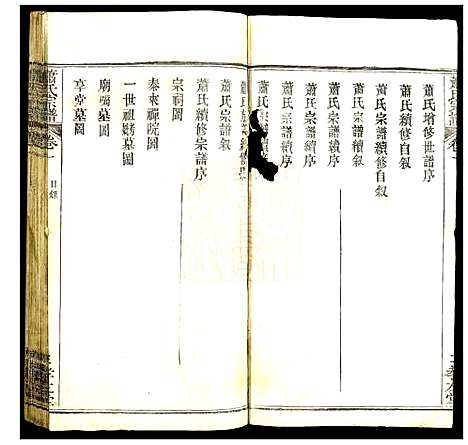 蕭氏增修世譜序
蕭氏續修自叙
蕭氏宗譜續修自叙
蕭氏宗譜續叙
蕭氏宗譜續序
蕭氏宗譜續序
蕭氏宗譜續序
蕭氏
蕭氏宗譜叙
蕭氏續修宗譜序
宗祠圖
泰來禪院圖
一世祖妣墓圖
廟灣墓圖
享堂墓圖
蕭氏宗譜
卷一
目錄